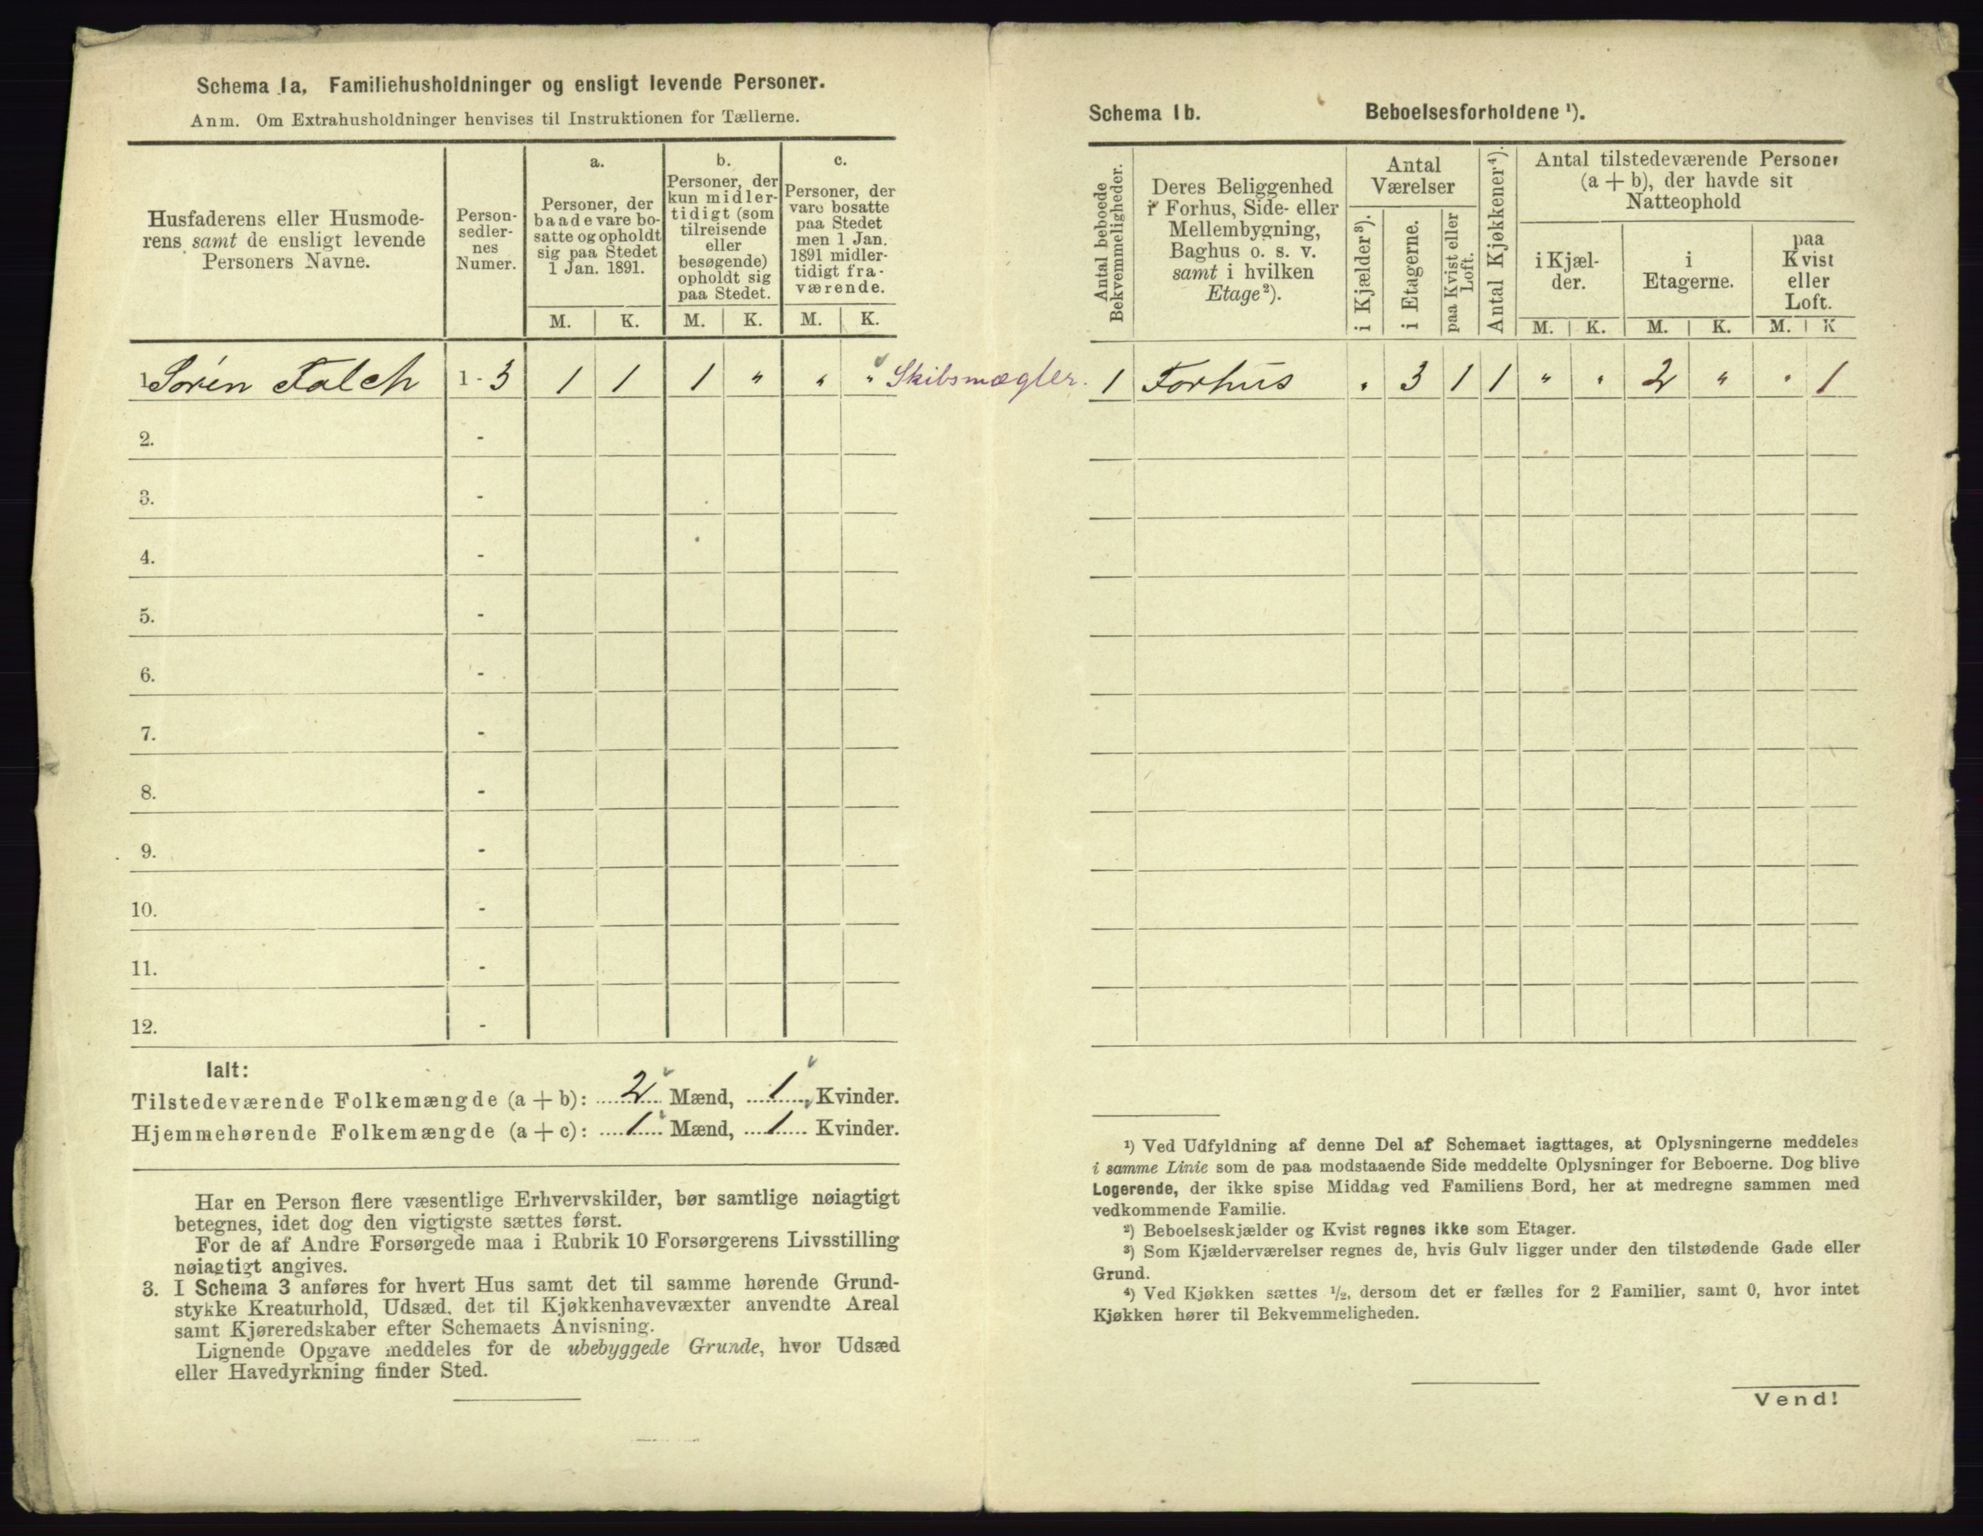 Schema 1a, Familiehusholdninger og ensligt levende Personer.
Anm. Om Extrahusholdninger henvises til Instruktionen for Tællerne.
Husfaderens eller Husmode-
rens samt de ensligt levende
Personers Navne.
Person-
sedler-
nes
Numer.
a.
Personer, der
baade vare bo-
satte og opholdt
sig paa Stedet
1 Jan. 1891.
M. K.
b.
Personer, der
kun midler-
tidigt (som
tilreisende
eller
besøgende)
opholdt sig
paa Stedet.
M. K.
c.
Personer, der
vare bosatte
paa Stedet
men 1 Jan.
1891 midler-
tidigt fra-
værende.
M. K.
1. Sorén Falch 1 - 3 1 1 1 " " " Skibsmægler.
2. -
3. -
4. -
5. -
6. -
7. -
8. -
9. -
10. -
11. -
12. -
Ialt:
Tilstedeværende Folkemængde (a + b): 2 Mænd, 1 Kvinder.
Hjemmehørende Folkemængde (a + c): 1 Mænd, 1 Kvinder.
Har en Person flere væsentlige Erhvervskilder, bør samtlige nøiagtigt
betegnes, idet dog den vigtigste sættes først.
For de af Andre Forsørgede maa i Rubrik 10 Forsørgerens Livsstilling
nøiagtigt angives.
3. I Schema 3 anføres for hvert Hus samt det til samme hørende Grund-
stykke Kreaturhold, Udsæd, det til Kjøkkenhavevæxter anvendte Areal
samt Kjøreredskaber efter Schemaets Anvisning.
Lignende Opgave meddeles for de ubebyggede Grunde, hvor Udsæd
eller Havedyrkning finder Sted.
Schema 1b. Beboelsesforholdene ¹).
Antal beboede
Bekvemmeligheder.
Deres Beliggenhed
i Forhus, Side- eller
Mellembygning,
Baghus o. s. v.
samt i hvilken
Etage ²).
Antal
Værelser
i Kjælder ³).
i Etagerne.
paa Kvist eller
Loft.
Antal Kjøkkener ⁴).
Antal tilstedeværende Personer
(a + b), der havde sit
Natteophold
i Kjæl-
der.
M. K.
i
Etagerne.
M. K.
paa
Kvist
eller
Loft.
M. K
1 Forhus " 3 1 1 " " 2 " " 1
¹) Ved Udfyldning af denne Del af Schemaet iagttages, at Oplysningerne meddeles
i samme Linie som de paa modstaaende Side meddelte Oplysninger for Beboerne. Dog blive
Logerende, der ikke spise Middag ved Familiens Bord, her at medregne sammen med
vedkommende Familie.
²) Beboelseskjælder og Kvist regnes ikke som Etager.
³) Som Kjælderværelser regnes de, hvis Gulv ligger under den tilstødende Gade eller
Grund.
⁴) Ved Kjøkken sættes ½, dersom det er fælles for 2 Familier, samt 0, hvor intet
Kjøkken hører til Bekvemmeligheden.
Vend!